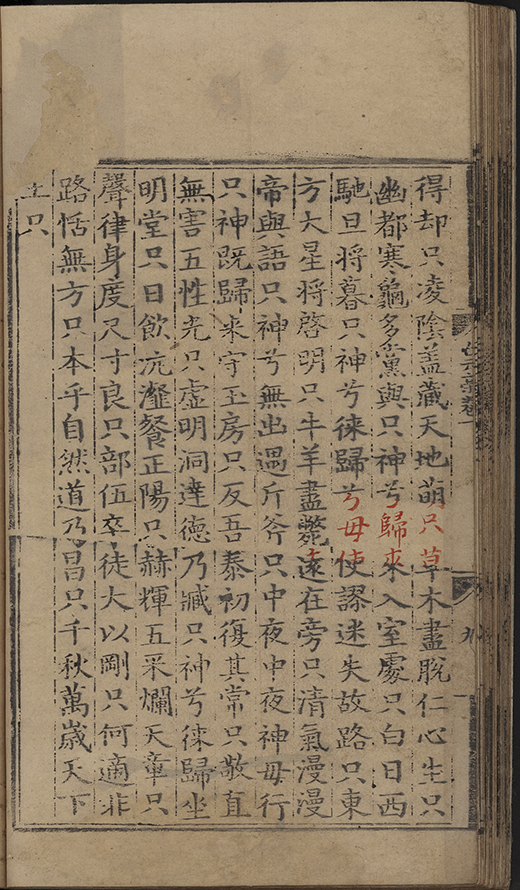 得却只凌陰盖藏天地萌只草木盡脫仁心生只
幽都寒龜多黨與只神兮歸來入室處只白日西
馳旦將暮只神兮徠歸兮毋使謬迷失故路只東
方大星將啓明只牛羊盡薨遠在旁只清氣漫漫
帝與語只神兮無出遇斤斧只中夜中夜神毋行
只神既歸來守玉房只反吾泰初復其常只敬直
無害五性充只虛明洞達德乃臧只神兮徠歸坐
明堂只日飲沆瀣餐正陽只赫輝五采爛天章只
聲律身度尺寸良只部伍卒徒大以剛只何適非
路恬無方只本乎自然道乃昌只千秋萬歲天下
只
九